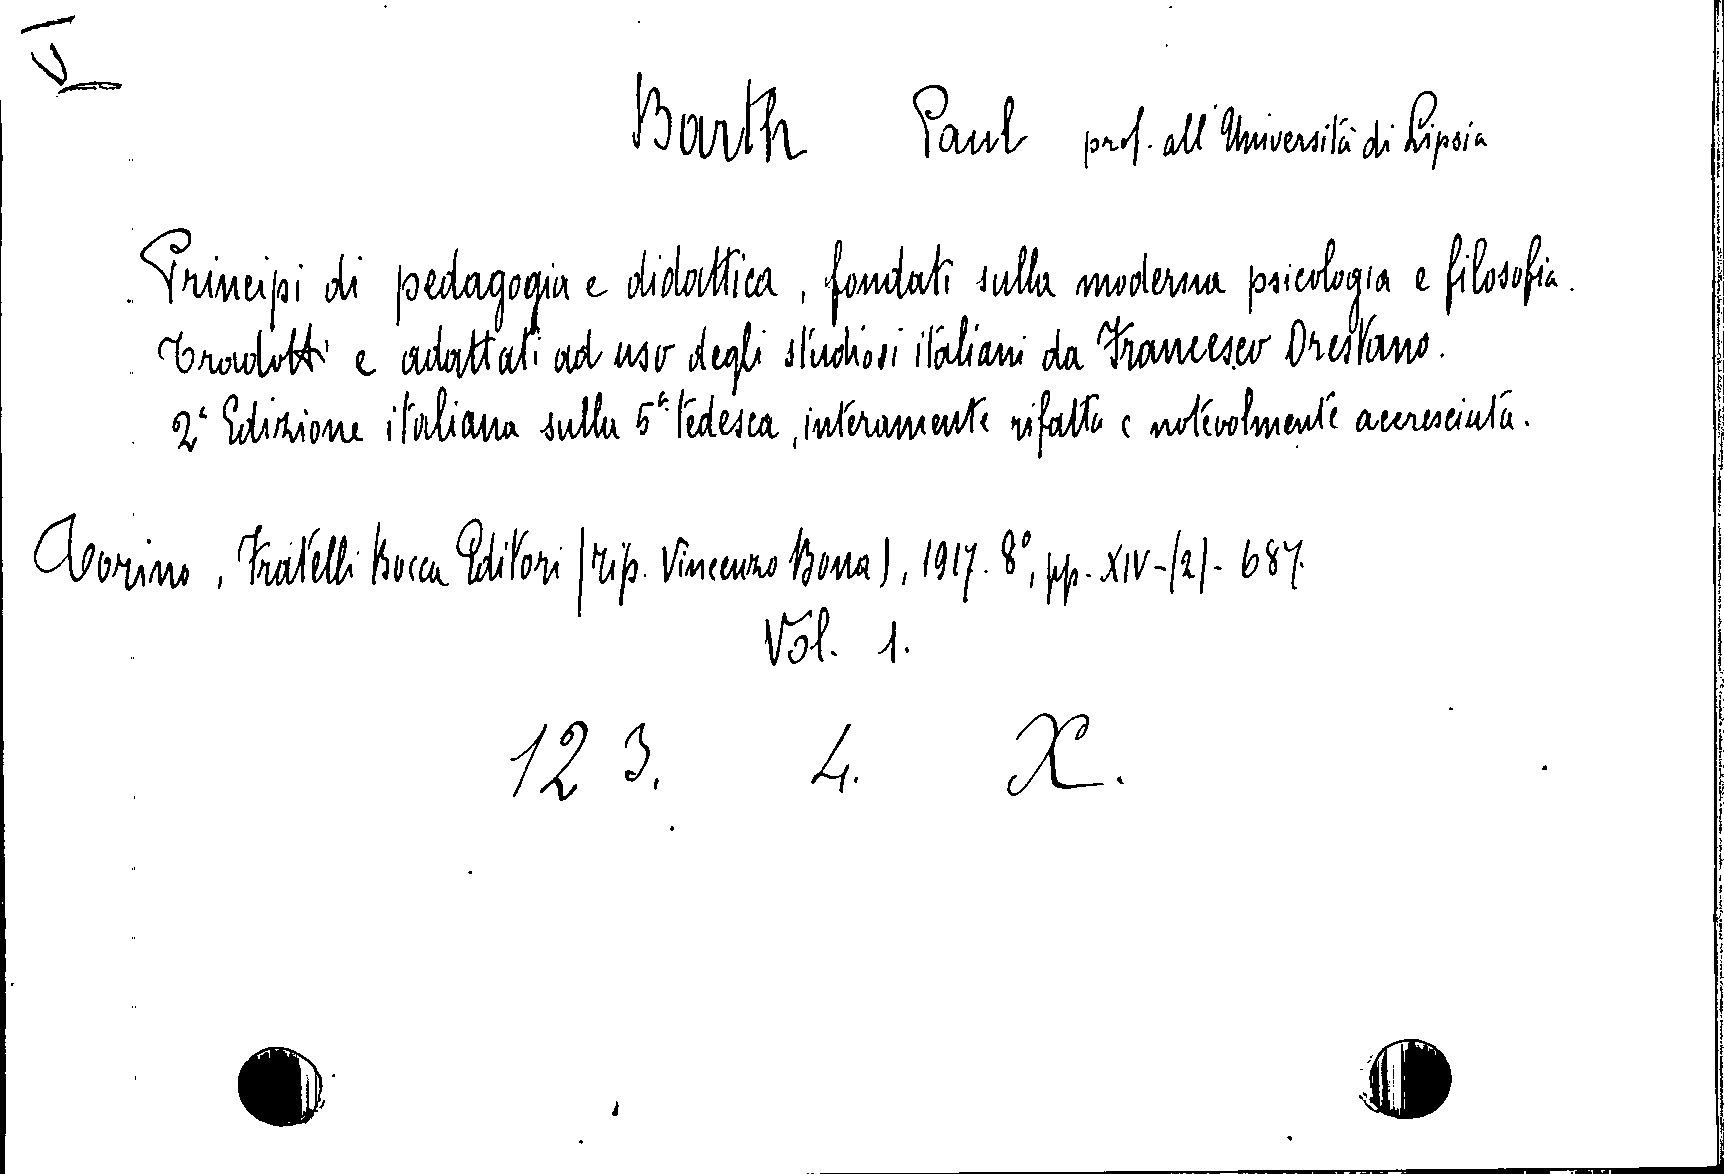 VI
Barth Paul prof. all'Università di Lipsia
Principi di pedagogia e didattica, fondati sulla moderna psicologia e filosofia.
Tradotti e adattati ad uso degli studiosi italiani da Francesco Orestano.
2ª Edizione italiana sulla 5ª tedesca, interamente rifatta e notevolmente accresciuta.
Torino, Fratelli Bocca Editori (Tip. Vincenzo Bona), 1917. 8°, pp. XIV-(2)-687.
Vol. 1.
123. 4. X.